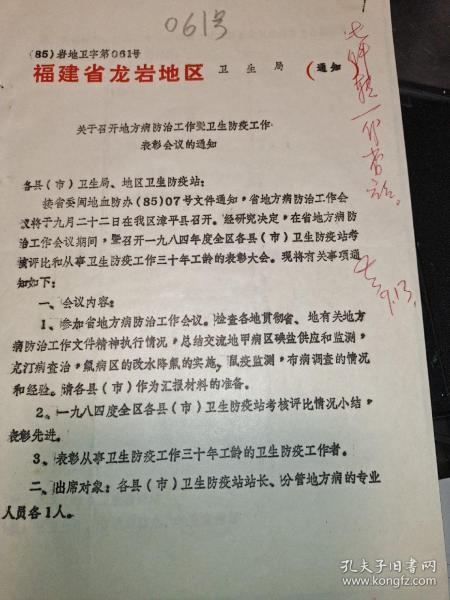 061号
(85)岩地卫字第061号
福建省龙岩地区 卫生局 (通知)
关于召开地方病防治工作暨卫生防疫工作
表彰会议的通知
各县(市)卫生局、地区卫生防疫站:
按省委闽地血防办(85)07号文件通知,省地方病防治工作会
议将于九月二十二日在我区漳平县召开。经研究决定,在省地方病防
治工作会议期间,暨召开一九八四年度全区各县(市)卫生防疫站考
核评比和从事卫生防疫工作三十年工龄的表彰大会。现将有关事项通
知如下:
一、会议内容:
1、参加省地方病防治工作会议。检查各地贯彻省、地有关地方
病防治工作文件精神执行情况,总结交流地甲病区碘盐供应和监测,
克汀病查治,氟病区的改水降氟的实施,鼠疫监测,布病调查的情况
和经验。请各县(市)作为汇报材料的准备。
2、一九八四度全区各县(市)卫生防疫站考核评比情况小结,
表彰先进。
3、表彰从事卫生防疫工作三十年工龄的卫生防疫工作者。
二、出席对象:各县(市)卫生防疫站站长、分管地方病的专业
人员各1人。
9.13
孔夫子旧书网
www.kongfz.com